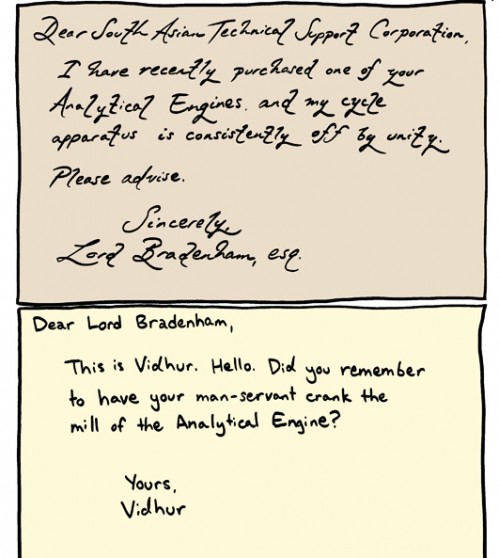 Dear South Asian Technical Support Corporation,
I have recently purchased one of your
Analytical Engines. and my cycle
apparatus is consistently off by unity.
Please advise.
Sincerely,
Lord Bradenham, esq.
Dear Lord Bradenham,
This is Vidhur. Hello. Did you remember
to have your man-servant crank the
mill of the Analytical Engine?
Yours,
Vidhur